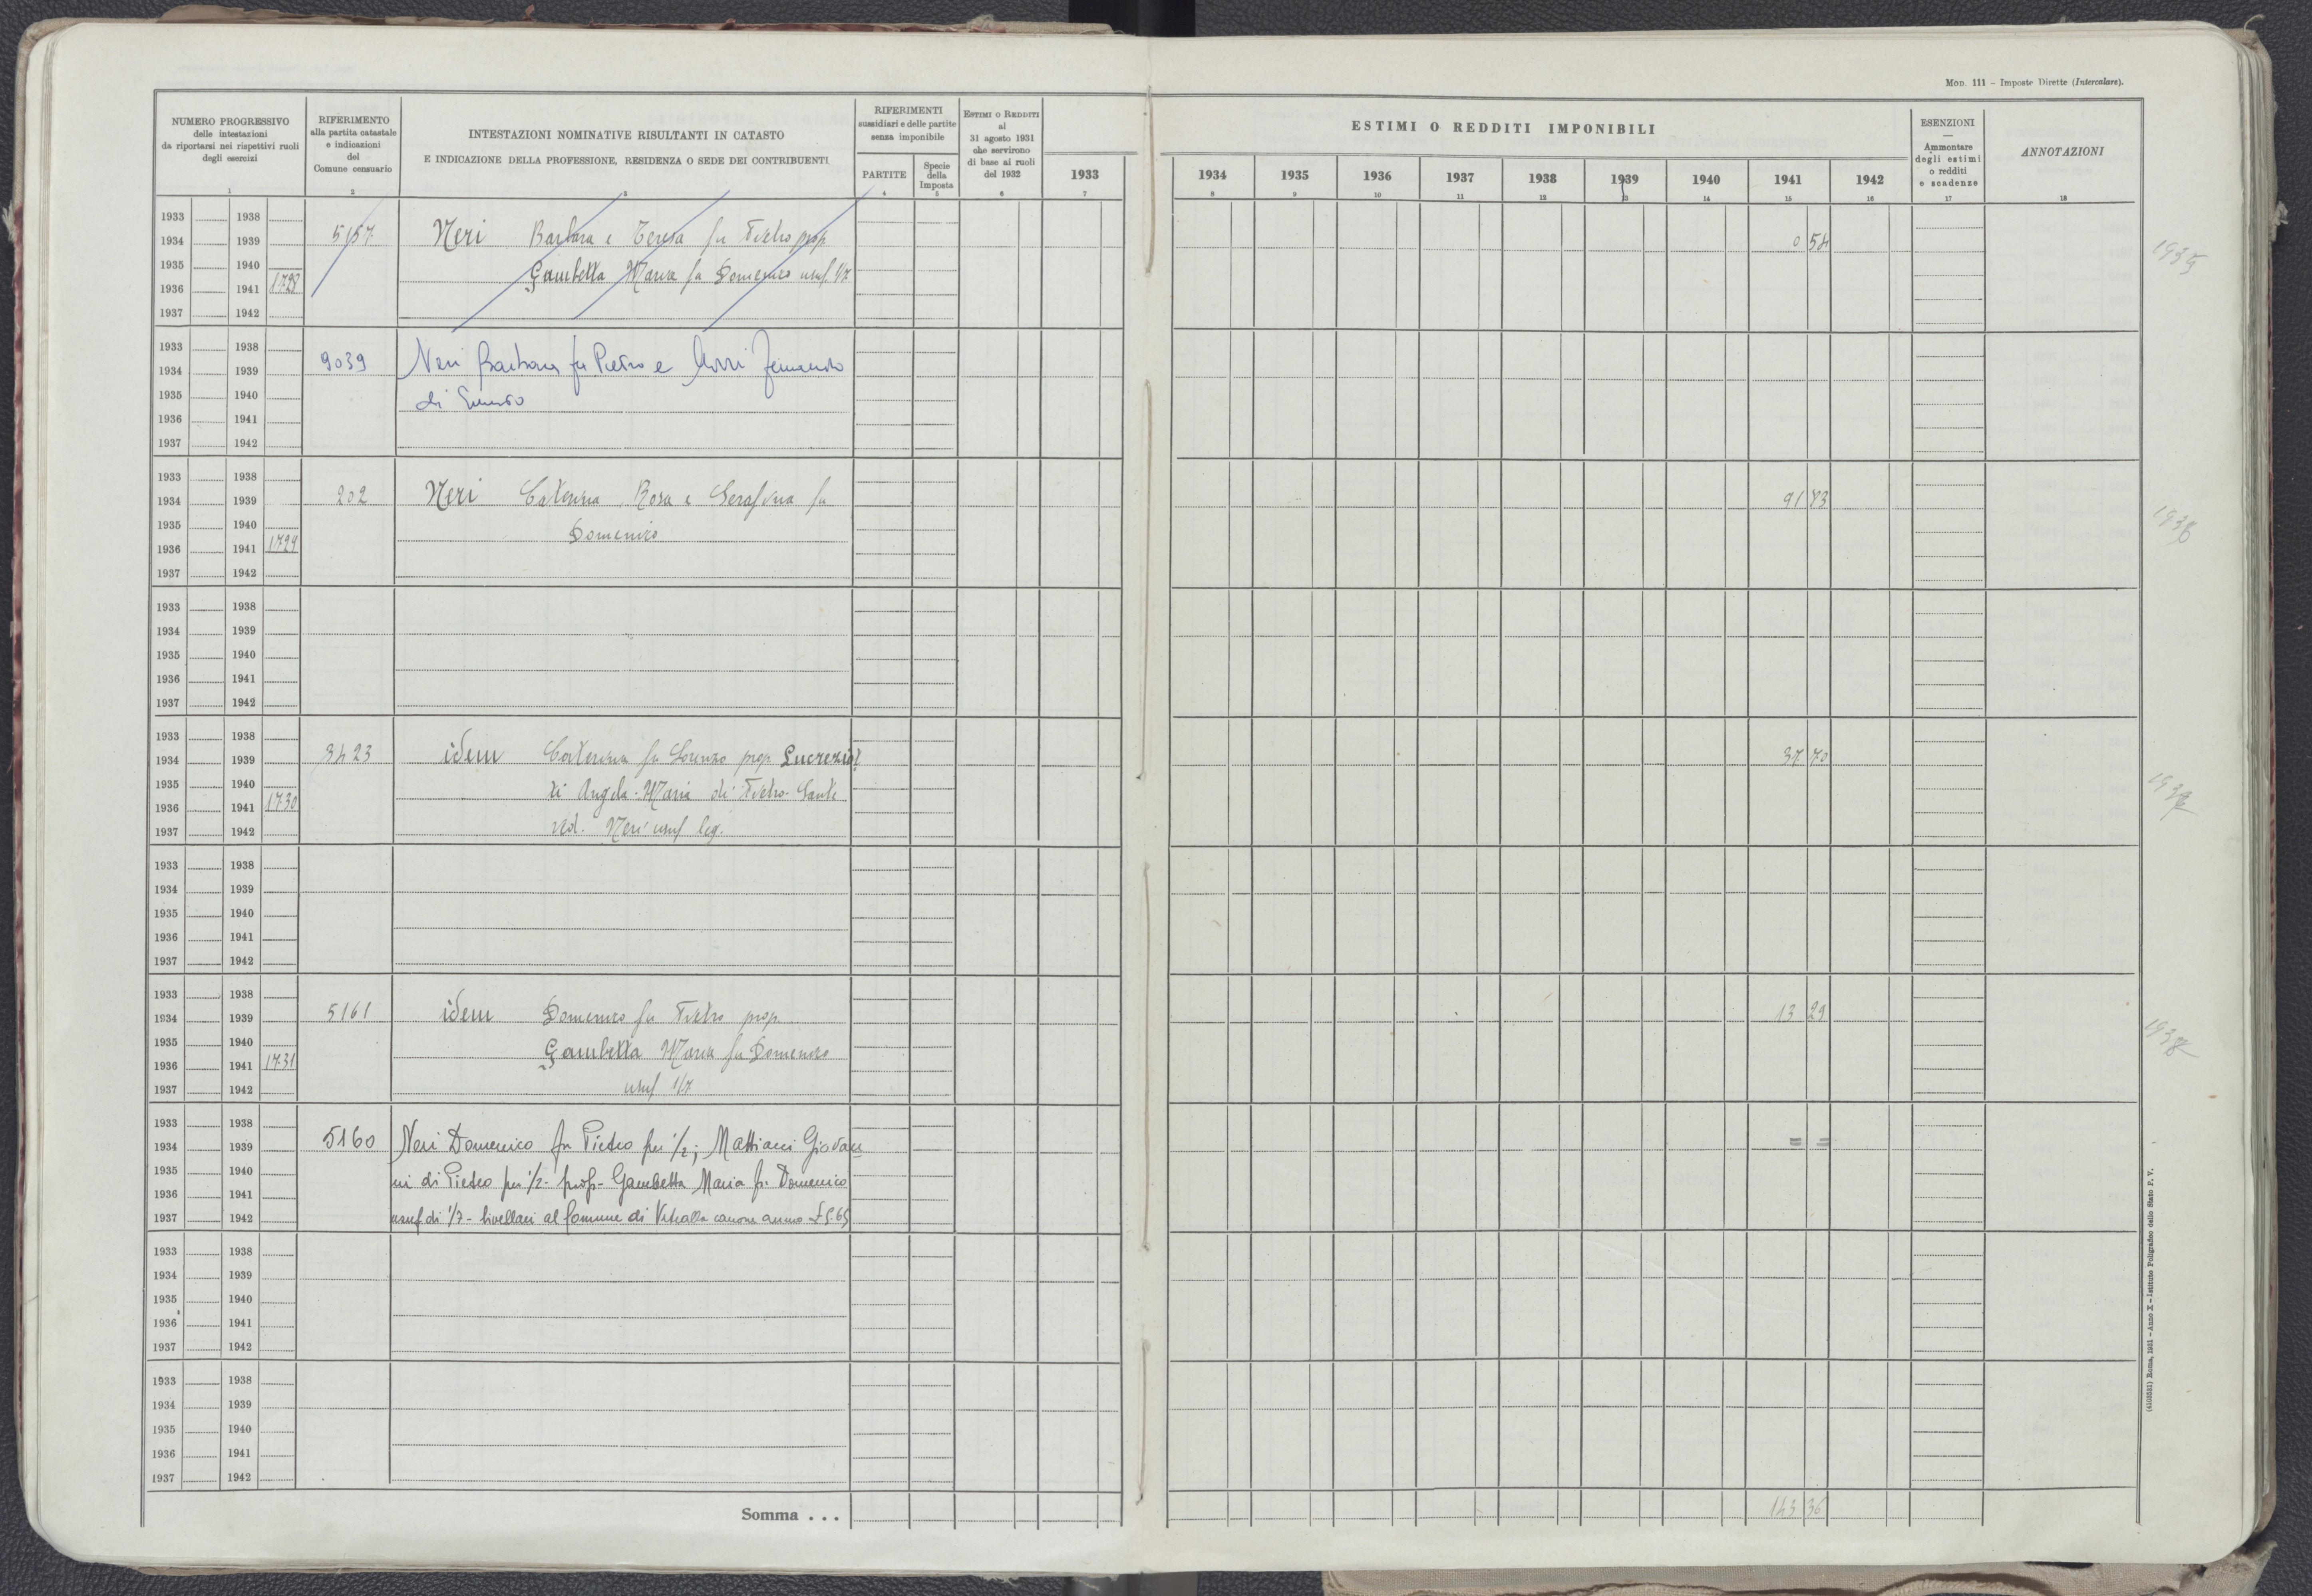 Mod. 111 - Imposte Dirette (Intercalare).
NUMERO PROGRESSIVO
delle intestazioni
da riportarsi nei rispettivi ruoli
degli esercizi
RIFERIMENTO
alla partita catastale
e indicazioni
del
Comune censuario
INTESTAZIONI NOMINATIVE RISULTANTI IN CATASTO
E INDICAZIONE DELLA PROFESSIONE, RESIDENZA O SEDE DEI CONTRIBUENTI
RIFERIMENTI
sussidiari e delle partite
senza imponibile
PARTITE
Specie
della
Imposta
ESTIMI O REDDITI
al
31 agosto 1931
che servirono
di base ai ruoli
del 1932
1933
ESTIMI O REDDITI IMPONIBILI
1934 1935 1936 1937 1938 1939 1940 1941 1942
ESENZIONI
—
Ammontare
degli estimi
o redditi
e scadenze
ANNOTAZIONI
1 2 3 4 5 6 7 8 9 10 11 12 13 14 15 16 17 18
1933 1938
1934 1939 5157 Neri Barbara e Teresa fu Pietro prop. 0 54
1935 1940 Gambetta Maria fu Domenico usuf. 1/7 1935
1936 1941 1728
1937 1942
1933 1938
1934 1939 9039 Neri Barbara fu Pietro e
1935 1940 di
1936 1941
1937 1942
1933 1938
1934 1939 202 Neri Caterina, Rosa e Serafina fu 91 83
1935 1940 Domenico 1936
1936 1941 1729
1937 1942
1933 1938
1934 1939
1935 1940
1936 1941
1937 1942
1933 1938
1934 1939 3423 idem Caterina fu Lorenzo prop. Lucrezio 37 70
1935 1940 di Angela-Maria di Pietro-Sante
1936 1941 1730
1937 1942 ved. Neri usuf. leg.
1933 1938
1934 1939
1935 1940
1936 1941
1937 1942
1933 1938
1934 1939 5161 idem Domenico fu Pietro prop. 13 29
1935 1940 Gambetta Maria fu Domenico
1936 1941 1731
1937 1942 usuf. 1/7
1933 1938
1934 1939 5160 Neri Domenico fu Pietro per 1/2; Mattiacci Giovan = =
1935 1940 ni di Pietro per 1/2- prop- Gambetta Maria fu Domenico
1936 1941
1937 1942 usuf di 1/7- livellari al Comune di Vetralla canone annuo £ 5.65
1933 1938
1934 1939
1935 1940
1936 1941
1937 1942
1933 1938
1934 1939
1935 1940
1936 1941
1937 1942
Somma . . . 143 36
(4103531) Roma, 1931 - Anno X - Istituto Poligrafico dello Stato P. V.